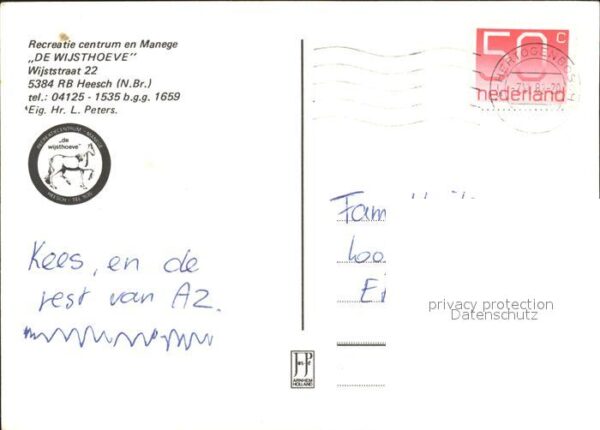 Recreatie centrum en Manege
„DE WIJSTHOEVE”
Wijststraat 22
5384 RB Heesch (N.Br.)
tel.: 04125 - 1535 b.g.g. 1659
Eig. Hr. L. Peters.
RECREATIECENTRUM - MANEGE
„de wijsthoeve”
Kees, en de
rest van A2.
50 c
nederland
Fam
privacy protection
Datenschutz
JosPé
ARNHEM
HOLLAND